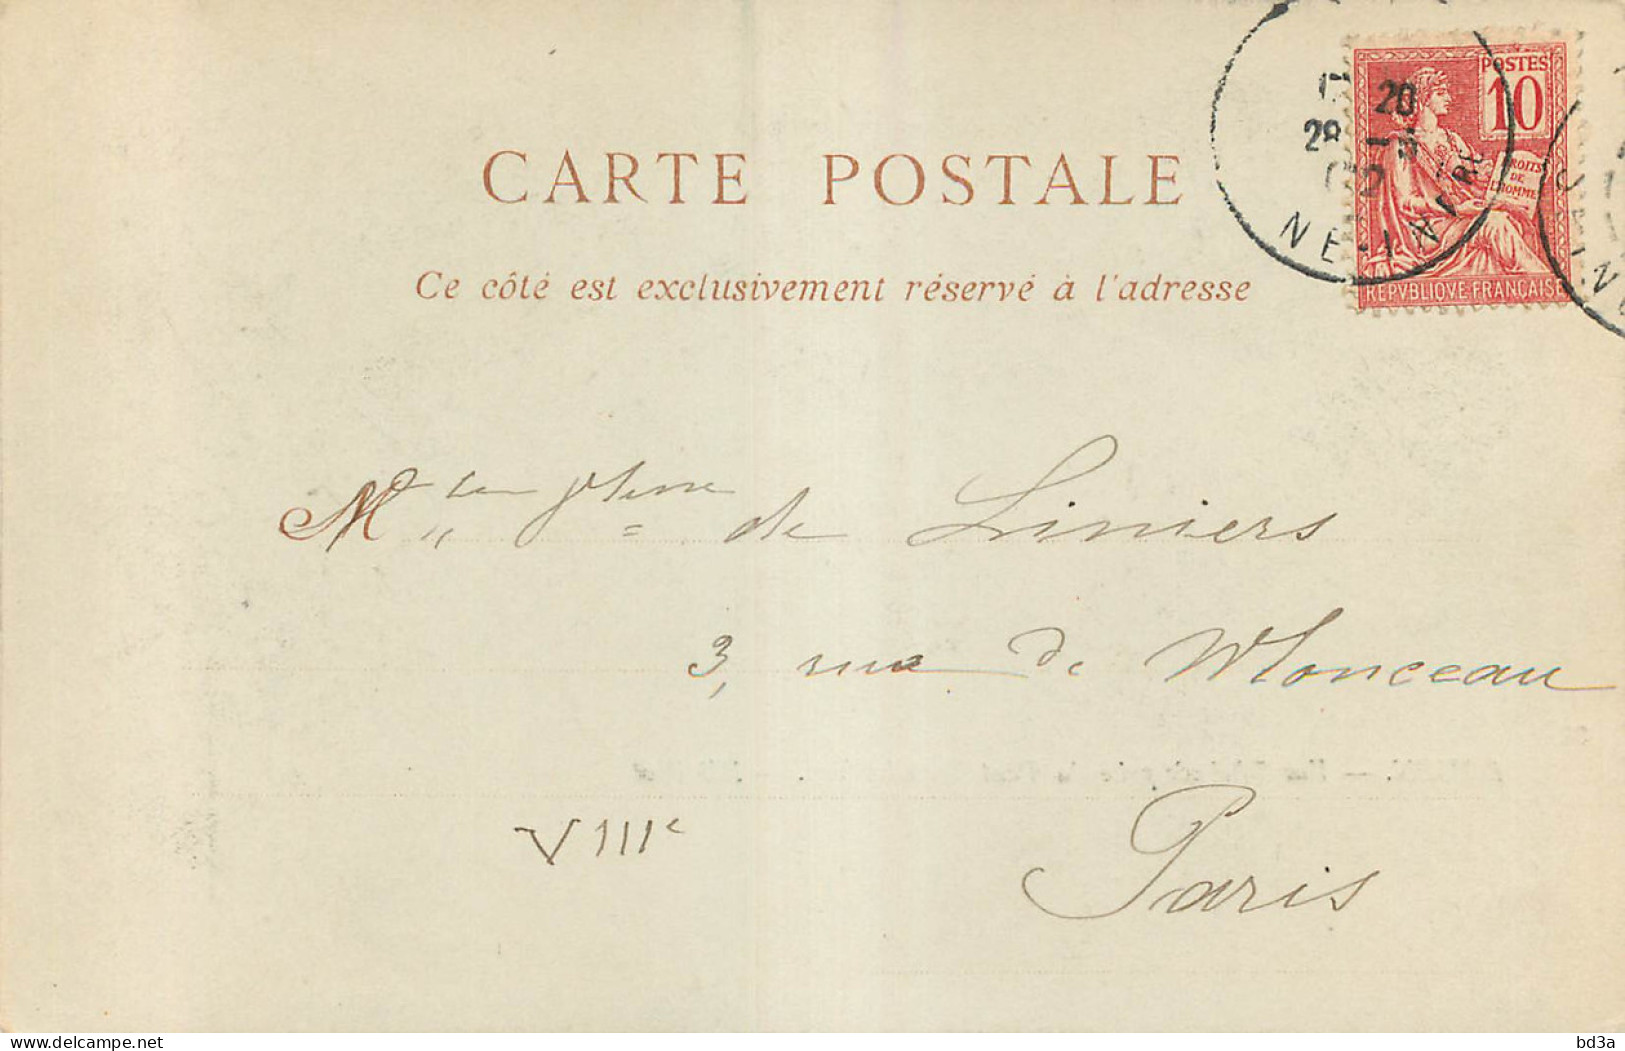 POSTES
10
DROITS
DE
L'HOMME
REPVBLIQVE FRANÇAISE
20
28
CARTE POSTALE
Ce côté est exclusivement réservé à l'adresse
M de Liniers
3, rue de Monceau
Paris
VIIIe
delcampe.net
bd3a